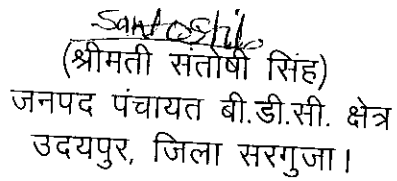 Santoshi
(श्रीमती संतोषी सिंह)
जनपद पंचायत बी.डी.सी. क्षेत्र
उदयपुर, जिला सरगुजा।